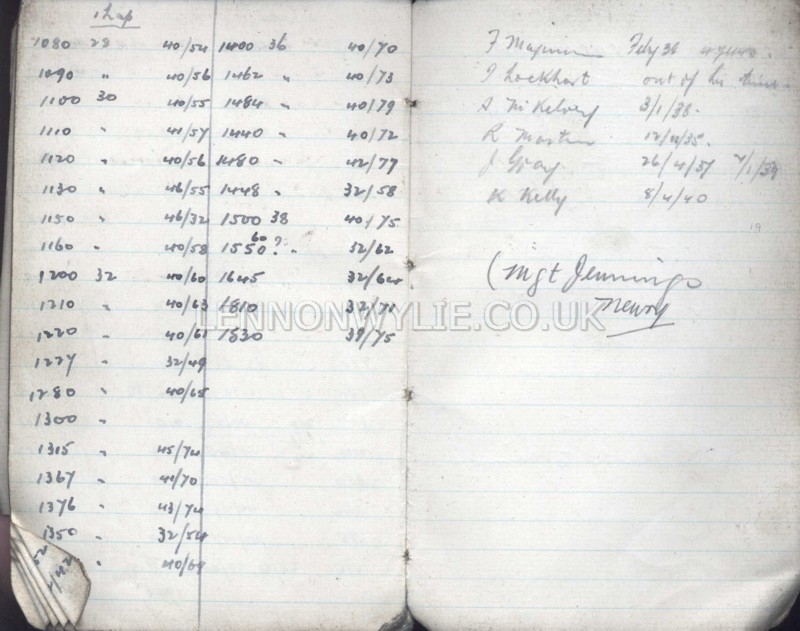 1 Lap
1080 28 40/54 1400 36 40/70
1090 " 40/56 1462 " 40/73
1100 30 40/55 1484 " 40/79
1110 " 41/57 1440 " 40/72
1120 " 40/56 1480 " 42/77
1130 " 46/55 1448 " 32/58
1150 " 46/32 1500 38 40/75
1160 " 40/58 1550 60 ? " 32/62
1200 32 40/60 1645 32/64
1210 " 40/63 1810 32/71
1220 " 40/61 1830 39/75
1227 " 32/49
1280 " 40/65
1300 "
1315 45/74
1367 41/70
1376 43/74
1350 32/54
" 40/69
F Feby 36
J Lockhart out of his time
S McKelvey 3/1/38.
R Martin 12/11/35.
J Gray 26/4/37
K Kelly 8/4/40
19
(Mgt Jennings
Newry
LENNONWYLIE.CO.UK